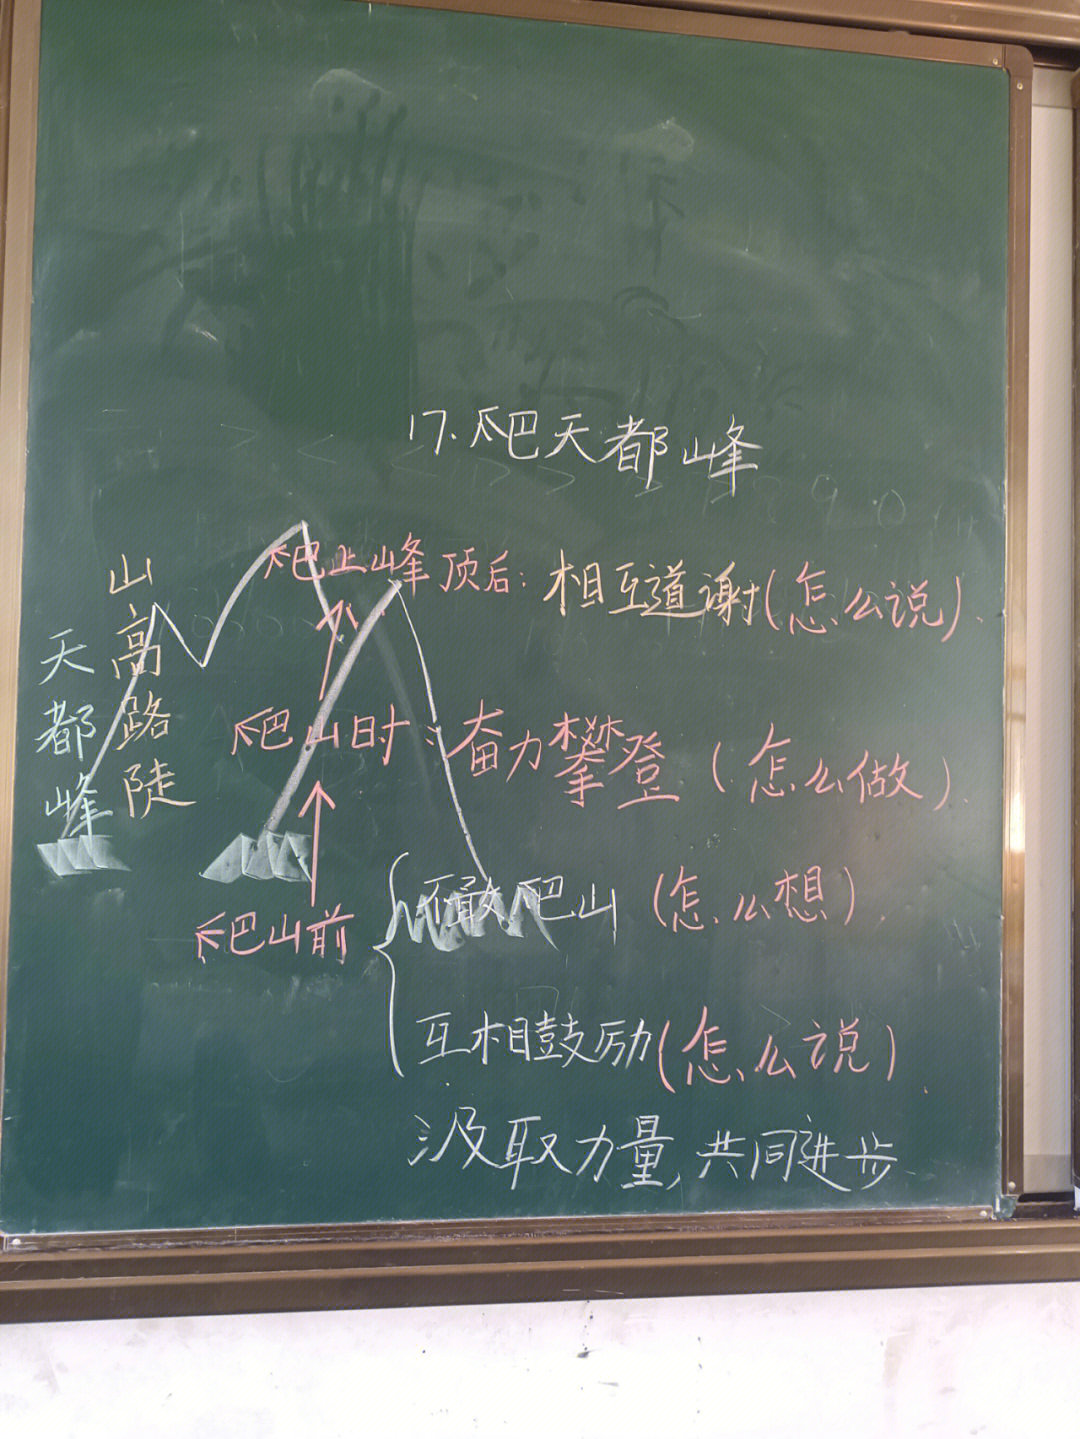 17.爬天都峰
天都峰
山高路陡
爬上峰顶后：相互道谢(怎么说).
爬山时：奋力攀登(怎么做)
爬山前
不敢爬山(怎么想).
互相鼓励(怎么说).
汲取力量,共同进步